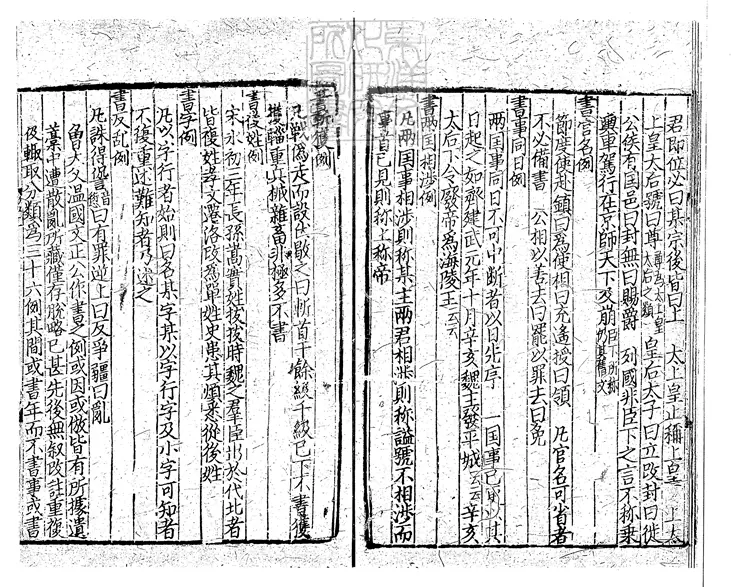 君即位必曰某宗後皆曰上　太上皇止稱上皇　上太
上皇太后號曰尊尊爲太上皇太后之類　皇后太子曰立改封曰徙
公侯有国邑曰封無曰賜爵　列國非臣下之言不称乘
輿車駕行在京師天下及崩
書官名例
節度使赴鎮曰爲使相曰充遙授曰領　凡官名可省者
不必備書　公相以善去曰罷以罪去曰免
書事同日例
两国事同日不可中断者以日先序　一国事已則以其
日起之如齊建武元年十月辛亥魏主發平城云云辛亥
太后下令廢帝爲海陵王云云
書两国相涉例
凡两国事相涉則称某主两君相涉則称謚號不相涉而
事首已見則称上称帝
書斬獲例
凡戰偽走而設伏敗之曰斬首千餘級千級已下不書獲
輜重兵械雜畜非極多不書
書復姓例
宋永初三年長孫嵩實姓拔拔時魏之羣臣出於代北者
皆複姓孝文遷洛改爲單姓史患其煩悉從後姓
書字例
凡以字行者始則曰名某字某以字行字及小字可知者
不復重述難知者乃述之
書反亂例
凡誅得曰有罪逆上曰反爭疆曰亂
曾大父温國文正公作書之例或因或倣皆有所據遺
藁中遭散亂所藏僅存脫略已甚先後無叙改註重複
伋輒取分類爲三十六例其間或書年而不書事或書